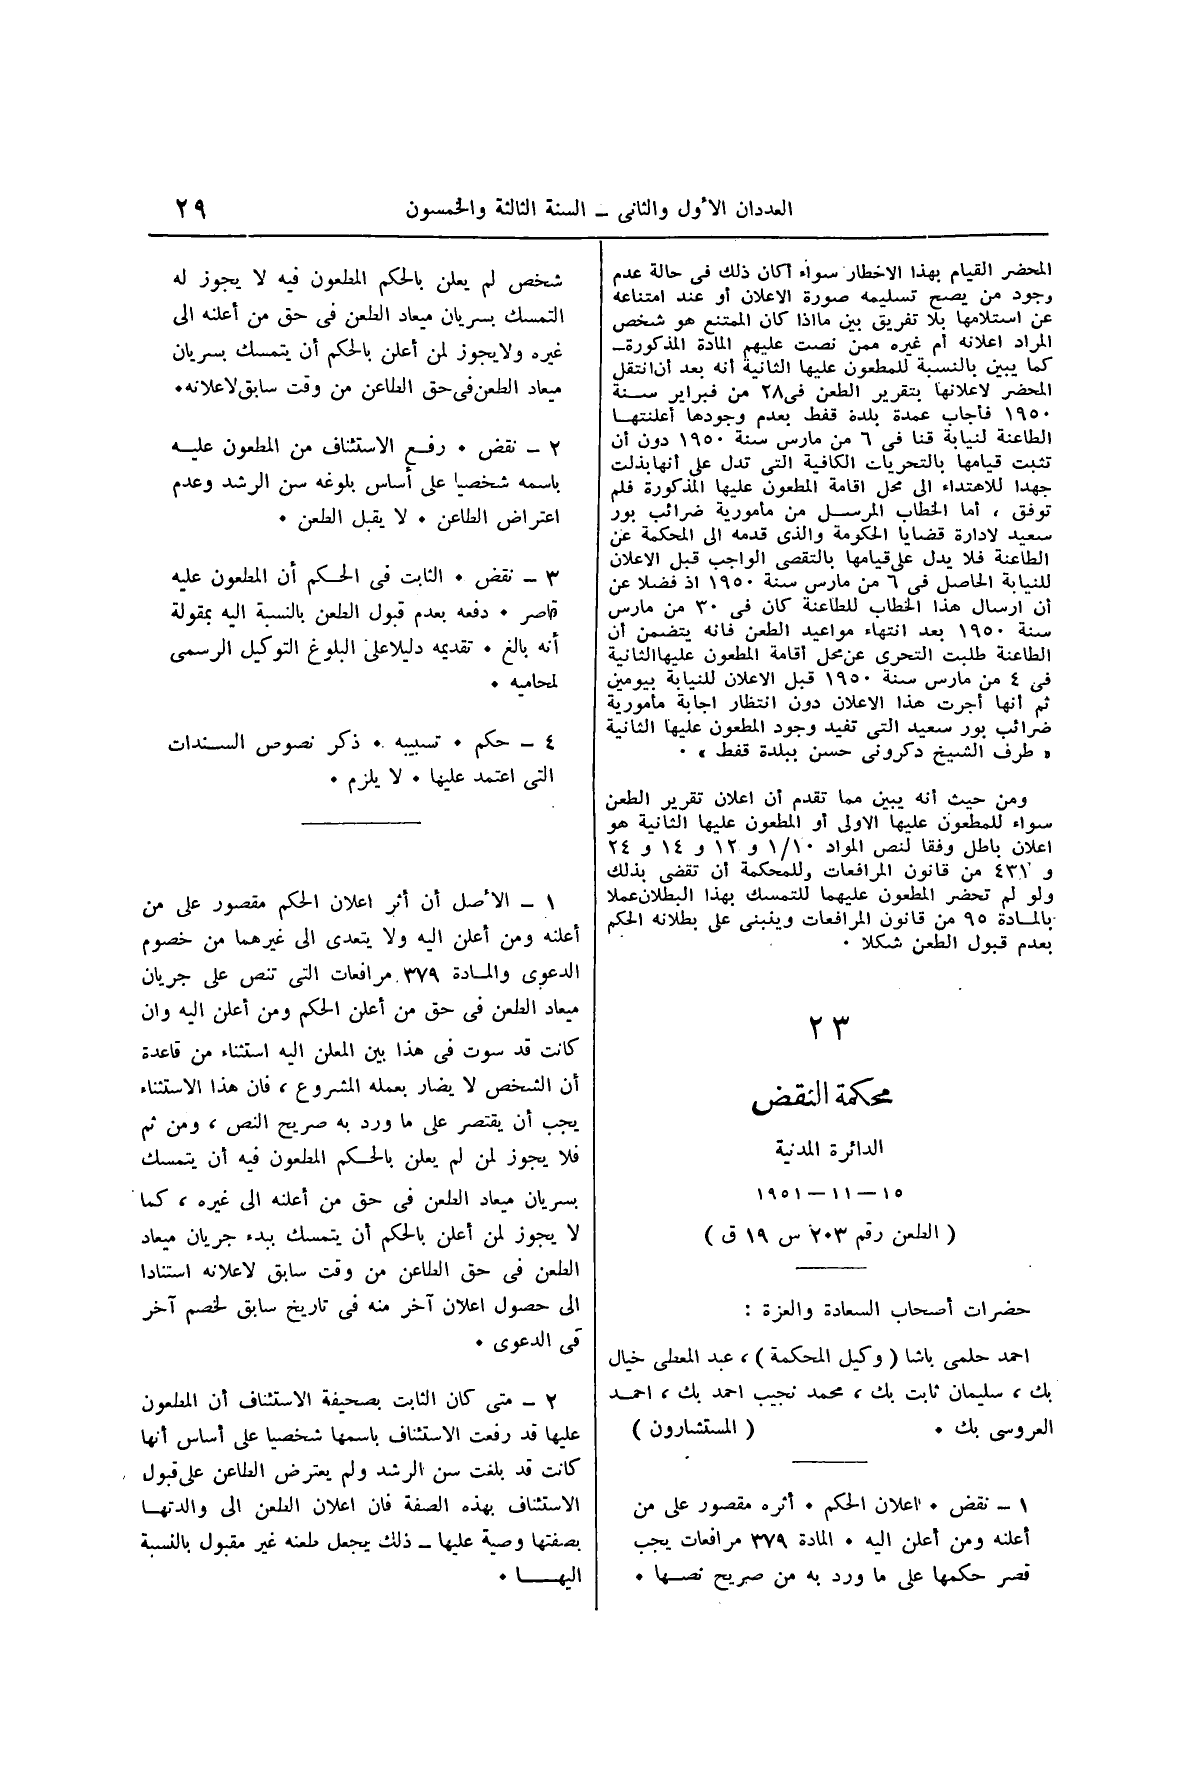 العددان الأول والثانى – السنة الثالثة والخمسون
٢٩
المحضر القيام بهذا الاخطار سواء أكان ذلك فى حالة عدم
وجود من يصح تسليمه صورة الاعلان أو عند امتناعه
عن استلامها بلا تفريق بين مااذا كان الممتنع هو شخص
المراد اعلانه أم غيره ممن نصت عليهم المادة المذكورة–
كما يبين بالنسبة للمطعون عليها الثانية أنه بعد أن انتقل
المحضر لاعلانها بتقرير الطعن فى٢٨ من فبراير سنة
١٩٥٠ فأجاب عمدة بلدة قفط بعدم وجودها أعلنتها
الطاعنة لنيابة قنا فى ٦ من مارس سنة ١٩٥٠ دون أن
تثبت قيامها بالتحريات الكافية التى تدل على أنها بذلت
جهدا للاهتداء الى محل اقامة المطعون عليها المذكورة فلم
توفق ، أما الخطاب المرسل من مأمورية ضرائب بور
سعيد لادارة قضايا الحكومة والذى قدمه الى المحكمة عن
الطاعنة فلا يدل على قيامها بالتقصى الواجب قبل الاعلان
للنيابة الحاصل فى ٦ من مارس سنة ١٩٥٠ اذ فضلا عن
أن ارسال هذا الخطاب للطاعنة كان فى ٣٠ من مارس
سنة ١٩٥٠ بعد انتهاء مواعيد الطعن فانه يتضمن أن
الطاعنة طلبت التحرى عن محل أقامة المطعون عليها الثانية
فى ٤ من مارس سنة ١٩٥٠ قبل الاعلان للنيابة بيومين
ثم أنها أجرت هذا الاعلان دون انتظار اجابة مأمورية
ضرائب بور سعيد التى تفيد وجود المطعون عليها الثانية
« طرف الشيخ دكرونى حسن ببلدة قفط » ٠
ومن حيث أنه يبين مما تقدم أن اعلان تقرير الطعن
سواء للمطعون عليها الاولى أو المطعون عليها الثانية هو
اعلان باطل وفقا لنص المواد ١/١٠ و ١٢ و ١٤ و ٢٤
و ٤٣١ من قانون المرافعات وللمحكمة أن تقضى بذلك
ولو لم تحضر المطعون عليهما للتمسك بهذا البطلان عملا
بالمادة ٩٥ من قانون المرافعات وينبنى على بطلانه الحكم
بعدم قبول الطعن شكلا ٠
٢٣
محكمة النقض
الدائرة المدنية
١٥ – ١١ – ١٩٥١
( الطعن رقم ٢٠٣ س ١٩ ق )
حضرات أصحاب السعادة والعزة :
احمد حلمى باشا ( وكيل المحكمة ) ، عبد المعطى خيال
بك ، سليمان ثابت بك ، محمد نجيب احمد بك ، احمد
العروسى بك ٠ ( المستشارون )
١ – نقض ٠ اعلان الحكم ٠ أثره مقصور على من
أعلنه ومن أعلن اليه ٠ المادة ٣٧٩ مرافعات يجب
قصر حكمها على ما ورد به من صريح نصها ٠
شخص لم يعلن بالحكم المطعون فيه لا يجوز له
التمسك بسريان ميعاد الطعن فى حق من أعلنه الى
غيره ولايجوز لمن أعلن بالحكم أن يتمسك بسريان
ميعاد الطعن فى حق الطاعن من وقت سابق لاعلانه٠
٢ – نقض ٠ رفع الاستئناف من المطعون عليه
باسمه شخصيا على أساس بلوغه سن الرشد وعدم
اعتراض الطاعن ٠ لا يقبل الطعن ٠
٣ – نقض ٠ الثابت فى الحكم أن المطعون عليه
قاصر ٠ دفعه بعدم قبول الطعن بالنسبة اليه بمقولة
أنه بالغ ٠ تقديمه دليلا على البلوغ التوكيل الرسمى
لمحاميه ٠
٤ – حكم ٠ تسبيبه ٠ ذكر نصوص السندات
التى اعتمد عليها ٠ لا يلزم ٠
١ – الأصل أن أثر اعلان الحكم مقصور على من
أعلنه ومن أعلن اليه ولا يتعدى الى غيرهما من خصوم
الدعوى والمادة ٣٧٩ مرافعات التى تنص على جريان
ميعاد الطعن فى حق من أعلن الحكم ومن أعلن اليه وان
كانت قد سوت فى هذا بين المعلن اليه استثناء من قاعدة
أن الشخص لا يضار بعمله المشروع ، فان هذا الاستثناء
يجب أن يقتصر على ما ورد به صريح النص ، ومن ثم
فلا يجوز لمن لم يعلن بالحكم المطعون فيه أن يتمسك
بسريان ميعاد الطعن فى حق من أعلنه الى غيره ، كما
لا يجوز لمن أعلن بالحكم أن يتمسك ببدء جريان ميعاد
الطعن فى حق الطاعن من وقت سابق لاعلانه استنادا
الى حصول اعلان آخر منه فى تاريخ سابق لخصم آخر
فى الدعوى ٠
٢ – متى كان الثابت بصحيفة الاستئناف أن المطعون
عليها قد رفعت الاستئناف باسمها شخصيا على أساس أنها
كانت قد بلغت سن الرشد ولم يعترض الطاعن على قبول
الاستئناف بهذه الصفة فان اعلان الطعن الى والدتها
بصفتها وصية عليها – ذلك يجعل طعنه غير مقبول بالنسبة
اليها ٠